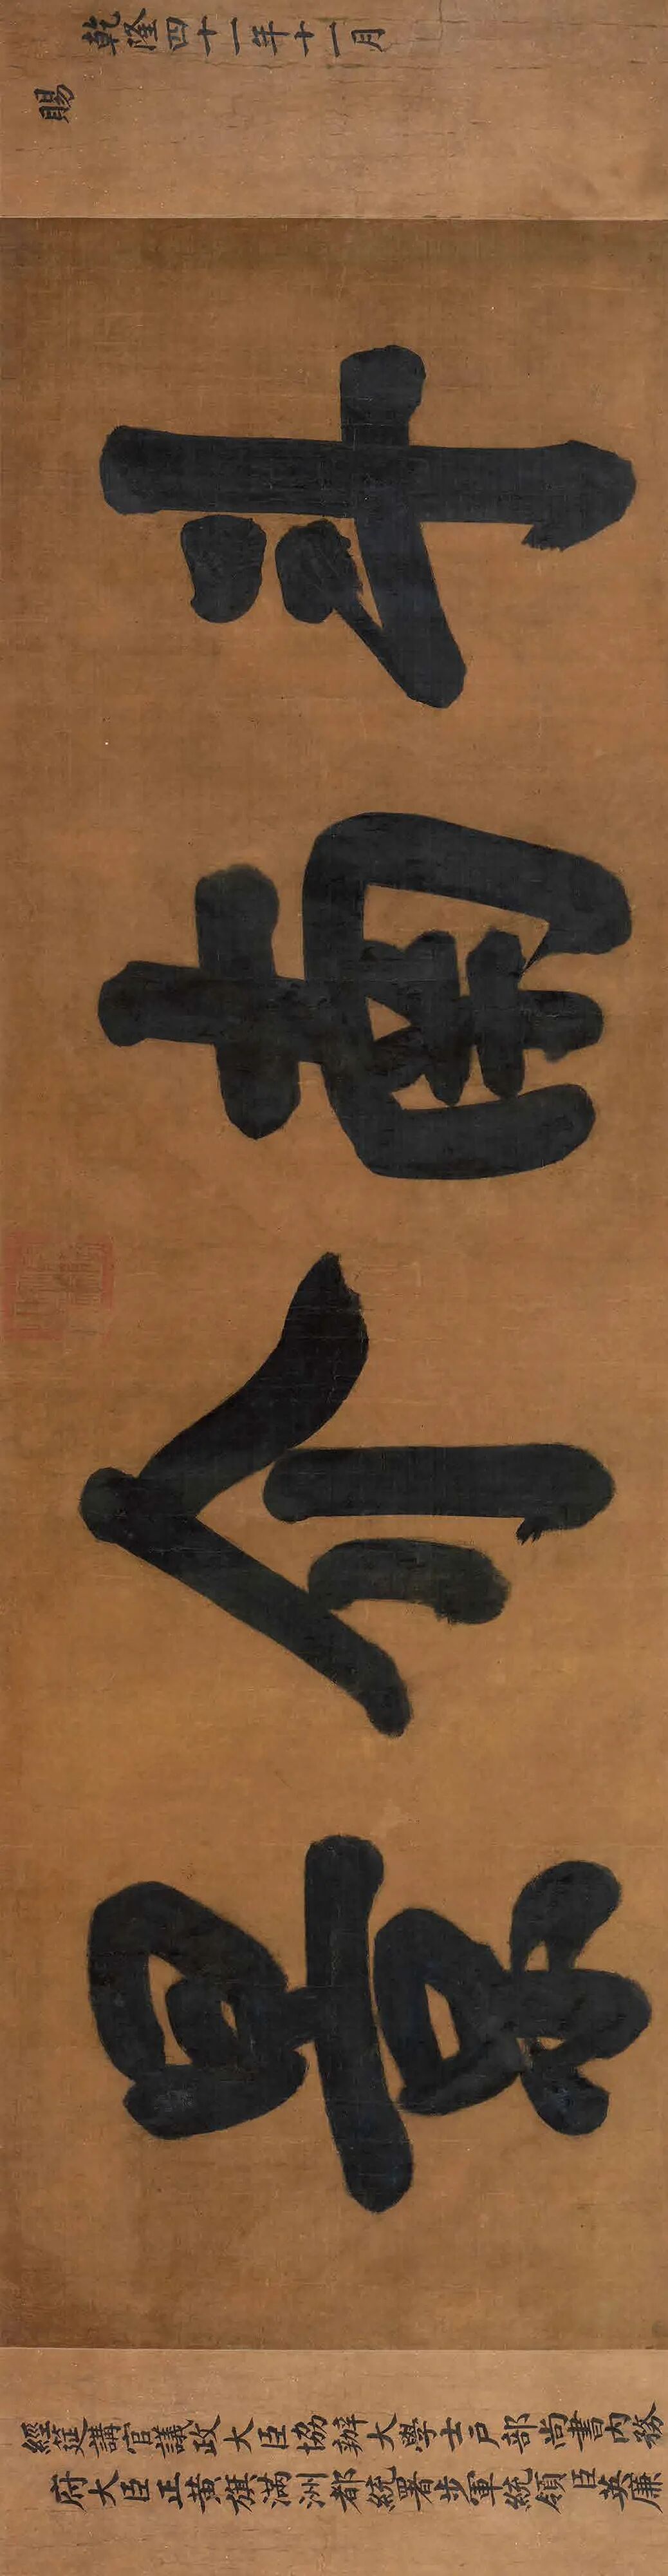 乾隆四十一年十一月
賜
斗南介景
經筵講官議政大臣協辦大學士戶部尚書內務
府大臣正黃旗滿洲都統署步軍統領臣英廉